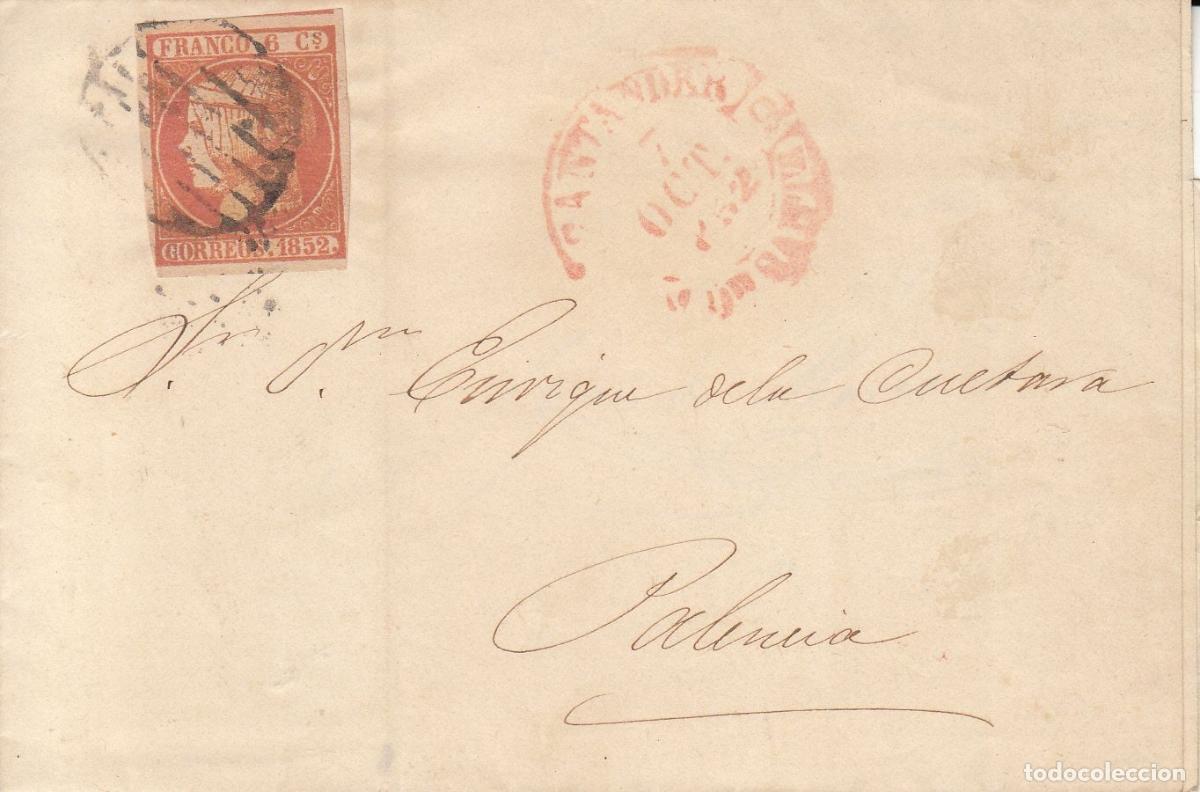 FRANCO 6 Cs
CORREOS. 1852.
SANTANDER
7
OCT.
1852
Sr. Dn Enrique dela Cuetara
Palencia
todocoleccion